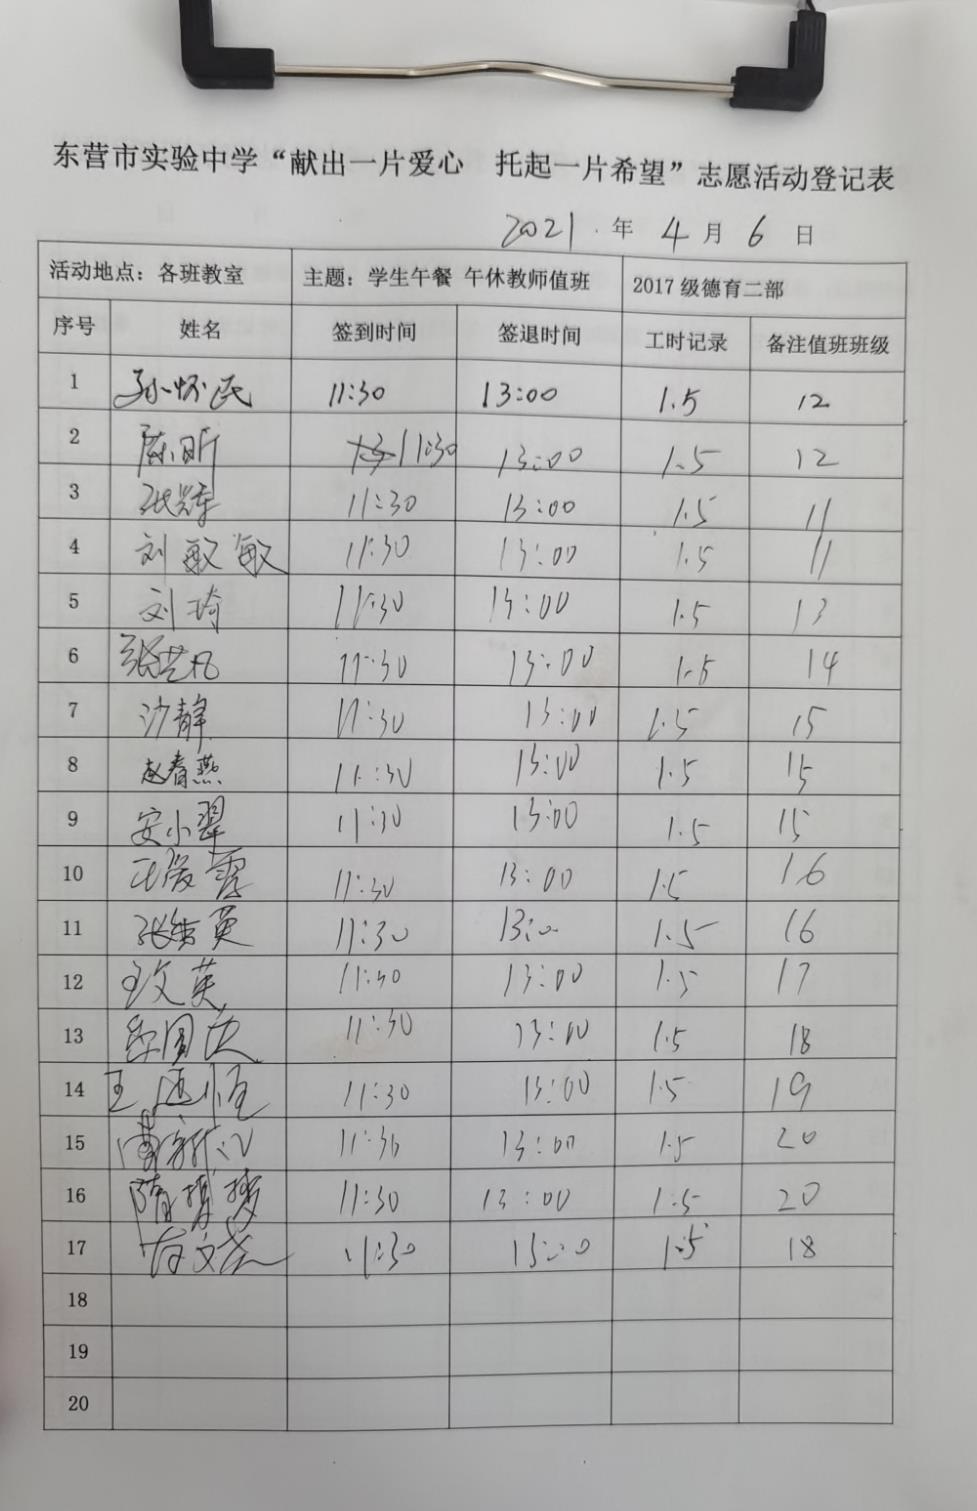 东营市实验中学“献出一片爱心 托起一片希望”志愿活动登记表
2021.年 4 月 6 日
活动地点：各班教室 主题：学生午餐 午休教师值班 2017级德育二部
序号 姓名 签到时间 签退时间 工时记录 备注值班班级
1 孙怀民 11:30 13:00 1.5 12
2 11:30 13:00 1.5 12
3 张辉 11:30 13:00 1.5 11
4 刘敏敏 11:30 13:00 1.5 11
5 刘琦 11:30 13:00 1.5 13
6 张艺凡 11:30 13:00 1.5 14
7 沙静 11:30 13:00 1.5 15
8 赵春燕 11:30 13:00 1.5 15
9 安小翠 11:30 13:00 1.5 15
10 11:30 13:00 1.5 16
11 11:30 13:0 1.5 16
12 王文英 11:30 13:00 1.5 17
13 11:30 13:00 1.5 18
14 11:30 13:00 1.5 19
15 11:30 13:00 1.5 20
16 11:30 13:00 1.5 20
17 11:30 13:00 1.5 18
18
19
20